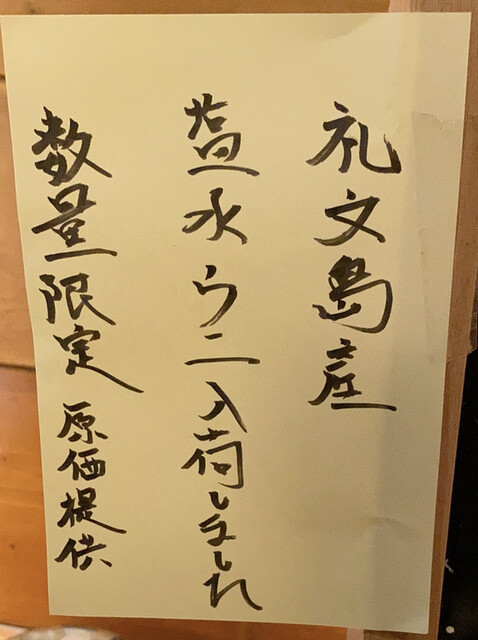 礼文島産
塩水ウニ入荷しました
数量限定 原価提供